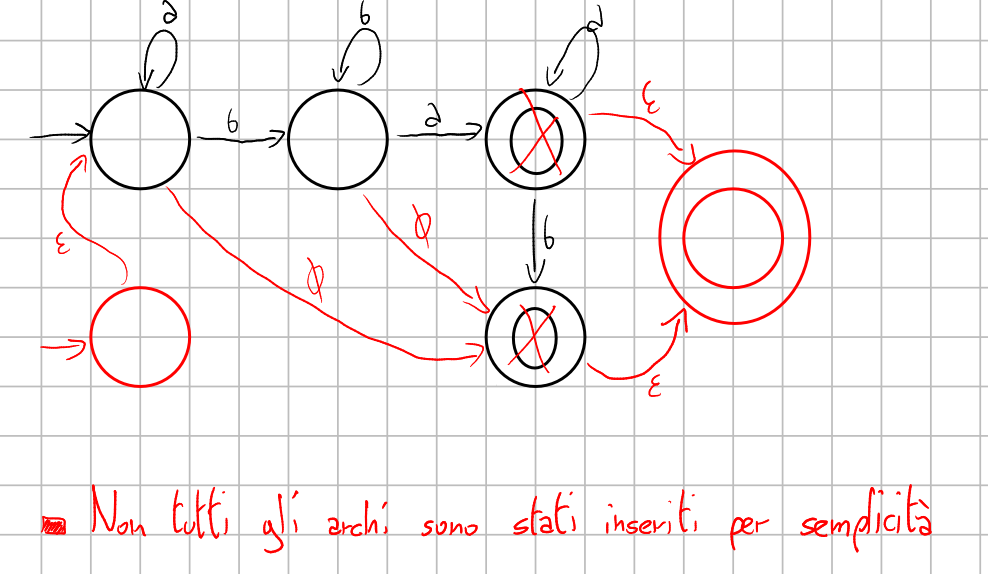 a b a
b a ε
ε ϕ b
ϕ
ε
Non tutti gli archi sono stati inseriti per semplicità